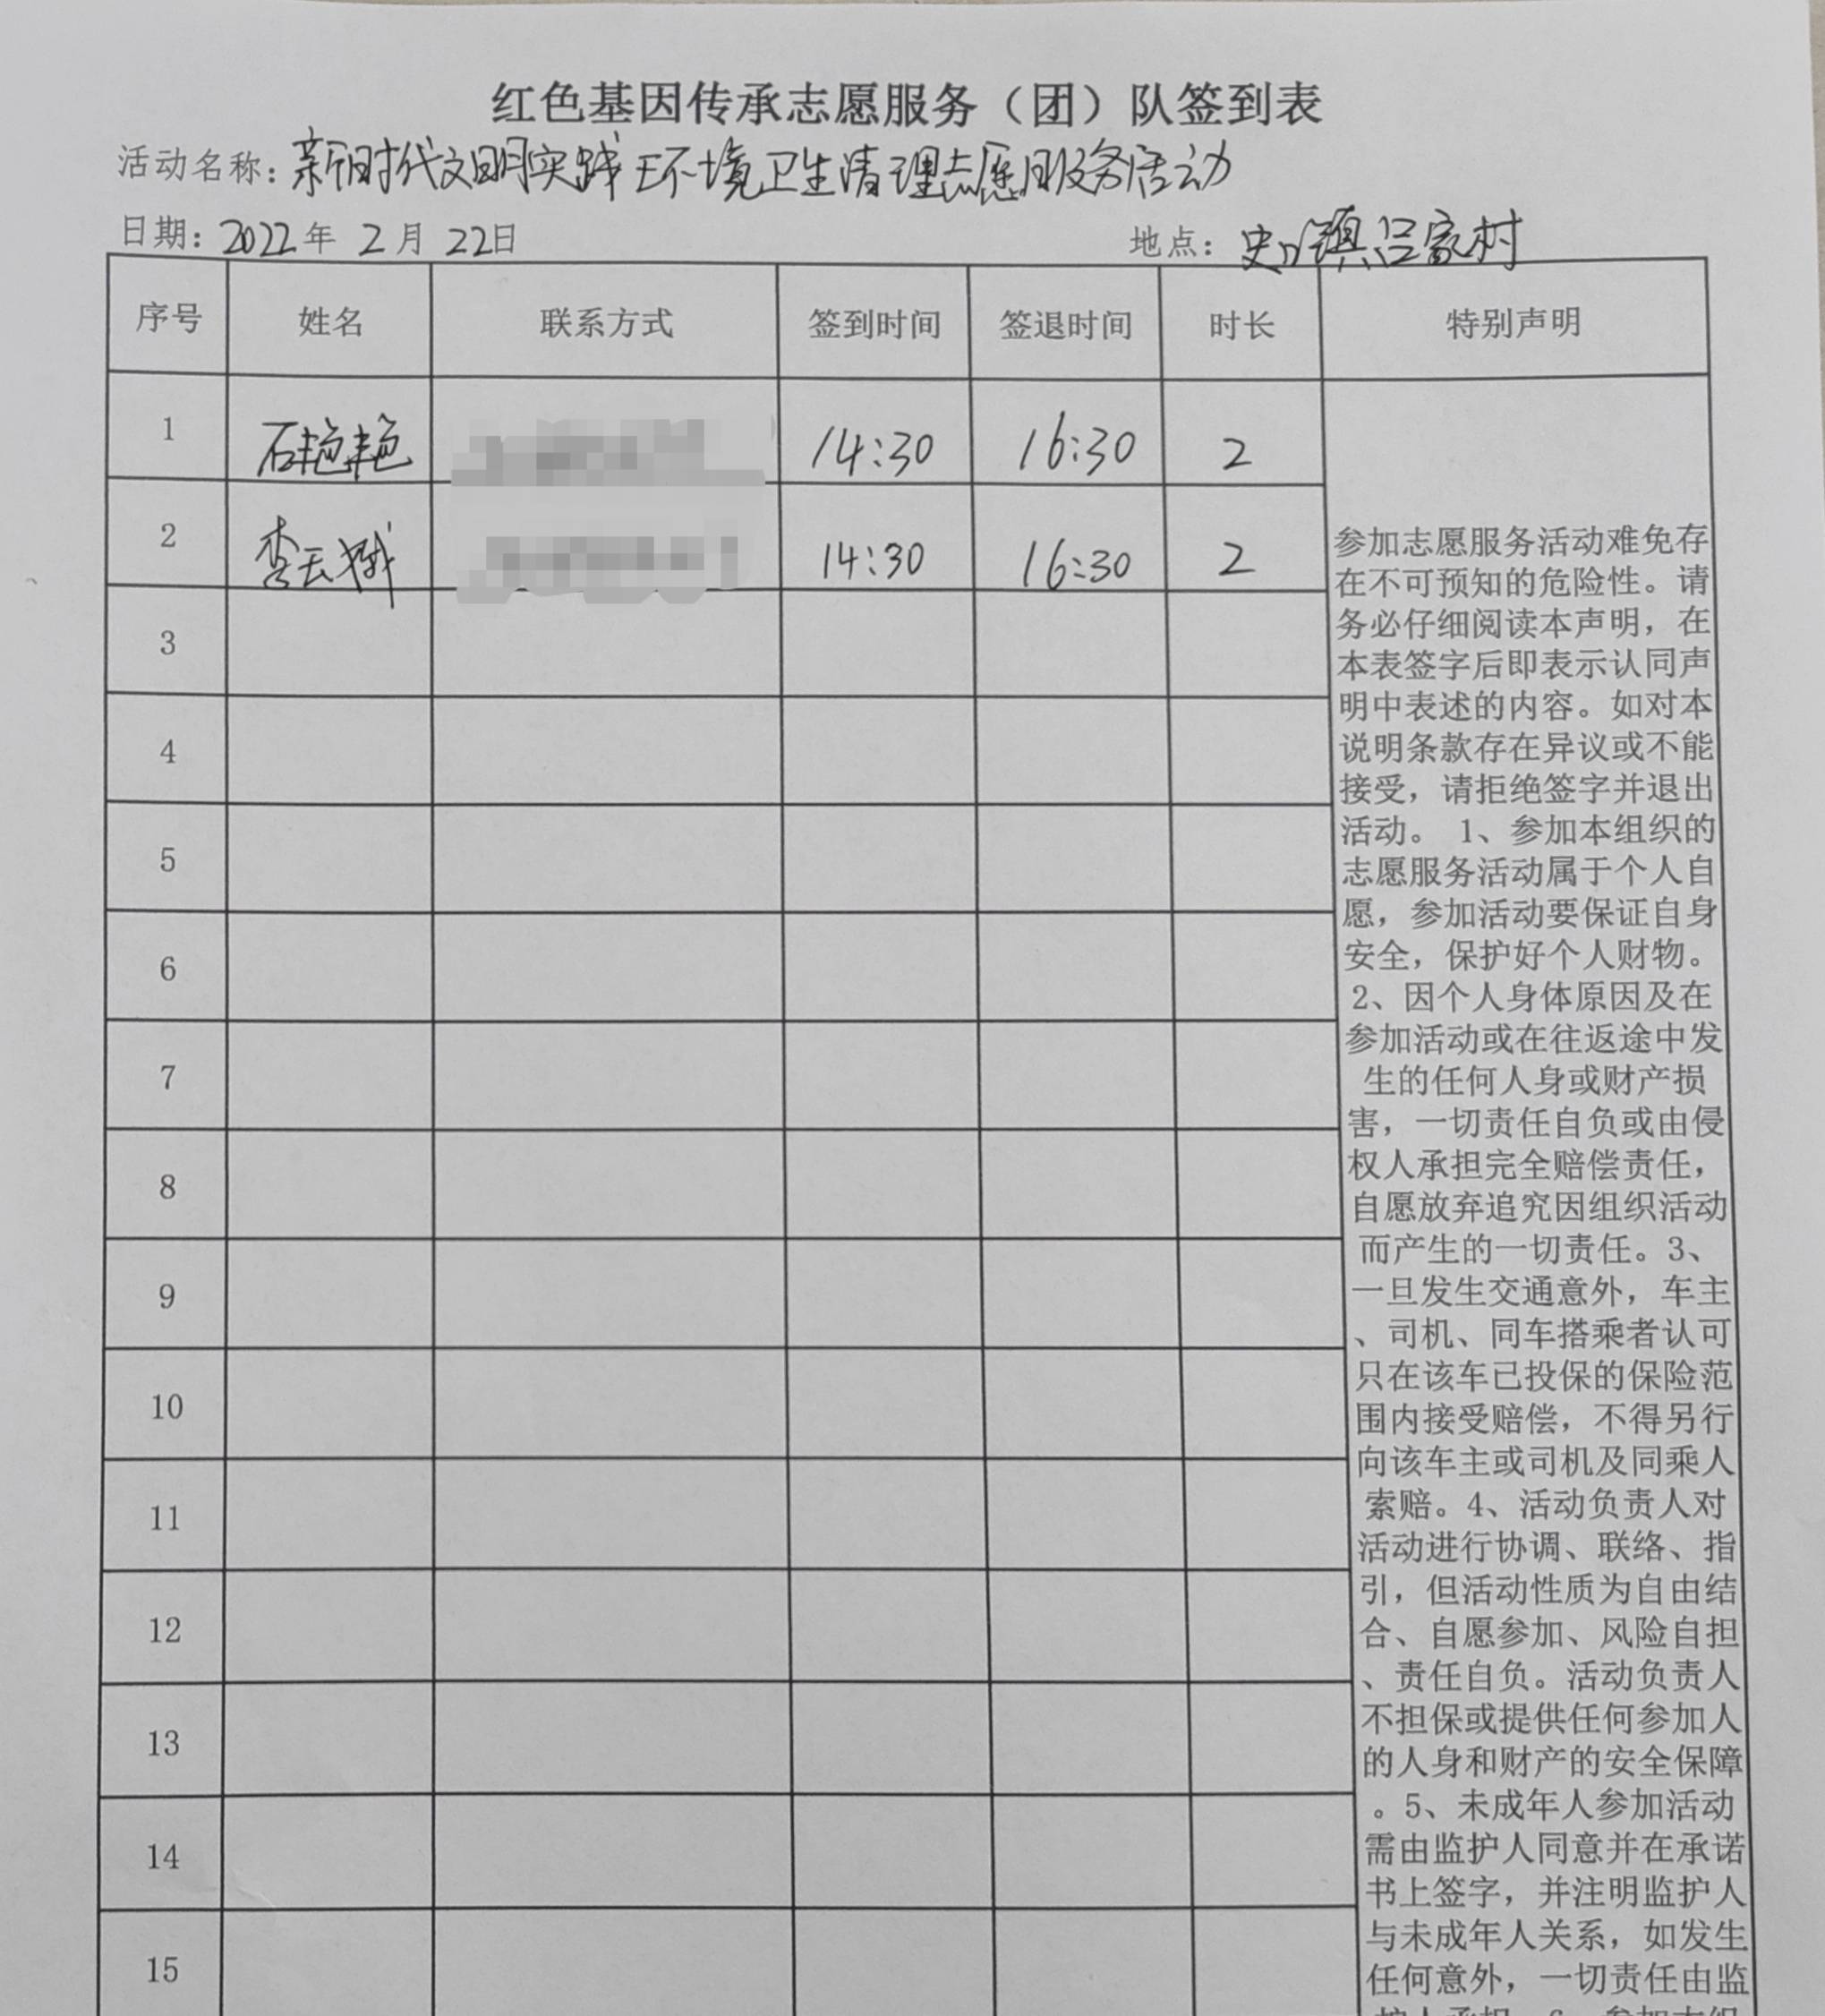 红色基因传承志愿服务（团）队签到表
活动名称：新时代文明实践环境卫生清理志愿服务活动
日期：2022年 2月 22日 地点：史口镇吕家村
序号 姓名 联系方式 签到时间 签退时间 时长 特别声明
1 石艳艳 14:30 16:30 2
2 李云 14:30 16:30 2
3
4
5
6
7
8
9
10
11
12
13
14
15
参加志愿服务活动难免存
在不可预知的危险性。请
务必仔细阅读本声明，在
本表签字后即表示认同声
明中表述的内容。如对本
说明条款存在异议或不能
接受，请拒绝签字并退出
活动。 1、参加本组织的
志愿服务活动属于个人自
愿，参加活动要保证自身
安全，保护好个人财物。
2、因个人身体原因及在
参加活动或在往返途中发
生的任何人身或财产损
害，一切责任自负或由侵
权人承担完全赔偿责任，
自愿放弃追究因组织活动
而产生的一切责任。3、
一旦发生交通意外，车主
、司机、同车搭乘者认可
只在该车已投保的保险范
围内接受赔偿，不得另行
向该车主或司机及同乘人
索赔。4、活动负责人对
活动进行协调、联络、指
引，但活动性质为自由结
合、自愿参加、风险自担
、责任自负。活动负责人
不担保或提供任何参加人
的人身和财产的安全保障
。5、未成年人参加活动
需由监护人同意并在承诺
书上签字，并注明监护人
与未成年人关系，如发生
任何意外，一切责任由监